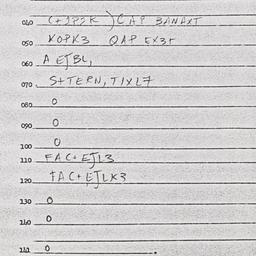 040 (+JPSK) CAP BANAXT
050 KOPK3 QAP EX3F
060 A EJBL,
070 S+TERN, TIXL7
080 0
090 0
100 0
110 FAC+EJL3
120 FAC+EJLK3
130 0
140 0
141 0